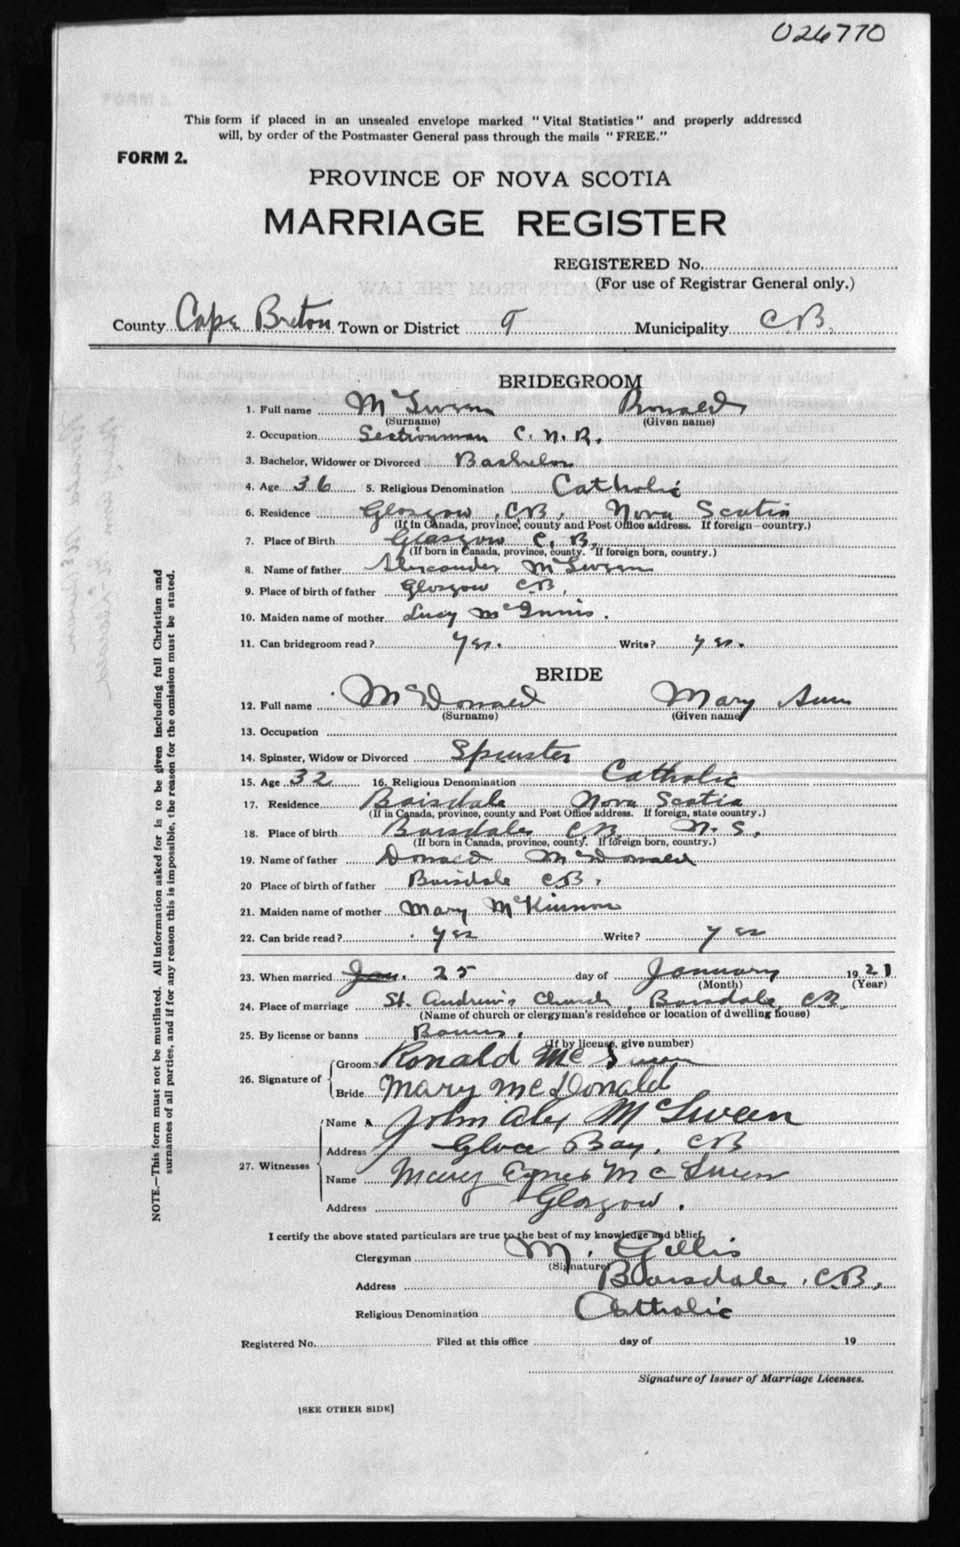 026770
This form if placed in an unsealed envelope marked "Vital Statistics" and properly addressed
will, by order of the Postmaster General pass through the mails "FREE."
FORM 2.
PROVINCE OF NOVA SCOTIA
MARRIAGE REGISTER
REGISTERED No.
(For use of Registrar General only.)
County Cape Breton Town or District 9 Municipality C B.
BRIDEGROOM
1. Full name McSween Ronald
(Surname) (Given name)
2. Occupation Sectionman C. N. R.
3. Bachelor, Widower or Divorced Bachelor
4. Age 36 5. Religious Denomination Catholic
6. Residence Glasgow, CB, Nova Scotia
(If in Canada, province, county and Post Office address. If foreign—country.)
7. Place of Birth Glasgow C. B.
(If born in Canada, province, county. If foreign born, country.)
8. Name of father Alexander McSween
9. Place of birth of father Glasgow CB,
10. Maiden name of mother Lucy McInnis.
11. Can bridegroom read? yes. Write? yes.
BRIDE
12. Full name McDonald Mary Ann
(Surname) (Given name)
13. Occupation
14. Spinster, Widow or Divorced Spinster
15. Age 32 16. Religious Denomination Catholic
17. Residence Boisdale Nova Scotia
(If in Canada, province, county and Post Office address. If foreign, state country.)
18. Place of birth Boisdale CB N. S.
(If born in Canada, province, county. If foreign born, country.)
19. Name of father Donald McDonald
20 Place of birth of father Boisdale CB.
21. Maiden name of mother Mary McKinnon
22. Can bride read? yes Write? yes
23. When married Jan. 25 day of January 1921
(Month) (Year)
24. Place of marriage St. Andrew's Church, Boisdale, CB.
(Name of church or clergyman's residence or location of dwelling house)
25. By license or banns Banns.
(If by license, give number)
26. Signature of
Groom Ronald McSween
Bride Mary McDonald
27. Witnesses
Name John Alex McSween
Address Glace Bay, CB
Name Mary Agnes McSween
Address Glasgow.
I certify the above stated particulars are true to the best of my knowledge and belief,
Clergyman M. Gillis
(Signature)
Address Boisdale, CB,
Religious Denomination Catholic
Registered No. Filed at this office day of 19
Signature of Issuer of Marriage Licenses.
[SEE OTHER SIDE]
NOTE.—This form must not be mutilated. All information asked for is to be given including full Christian and
surnames of all parties, and if for any reason this is impossible, the reason for the omission must be stated.